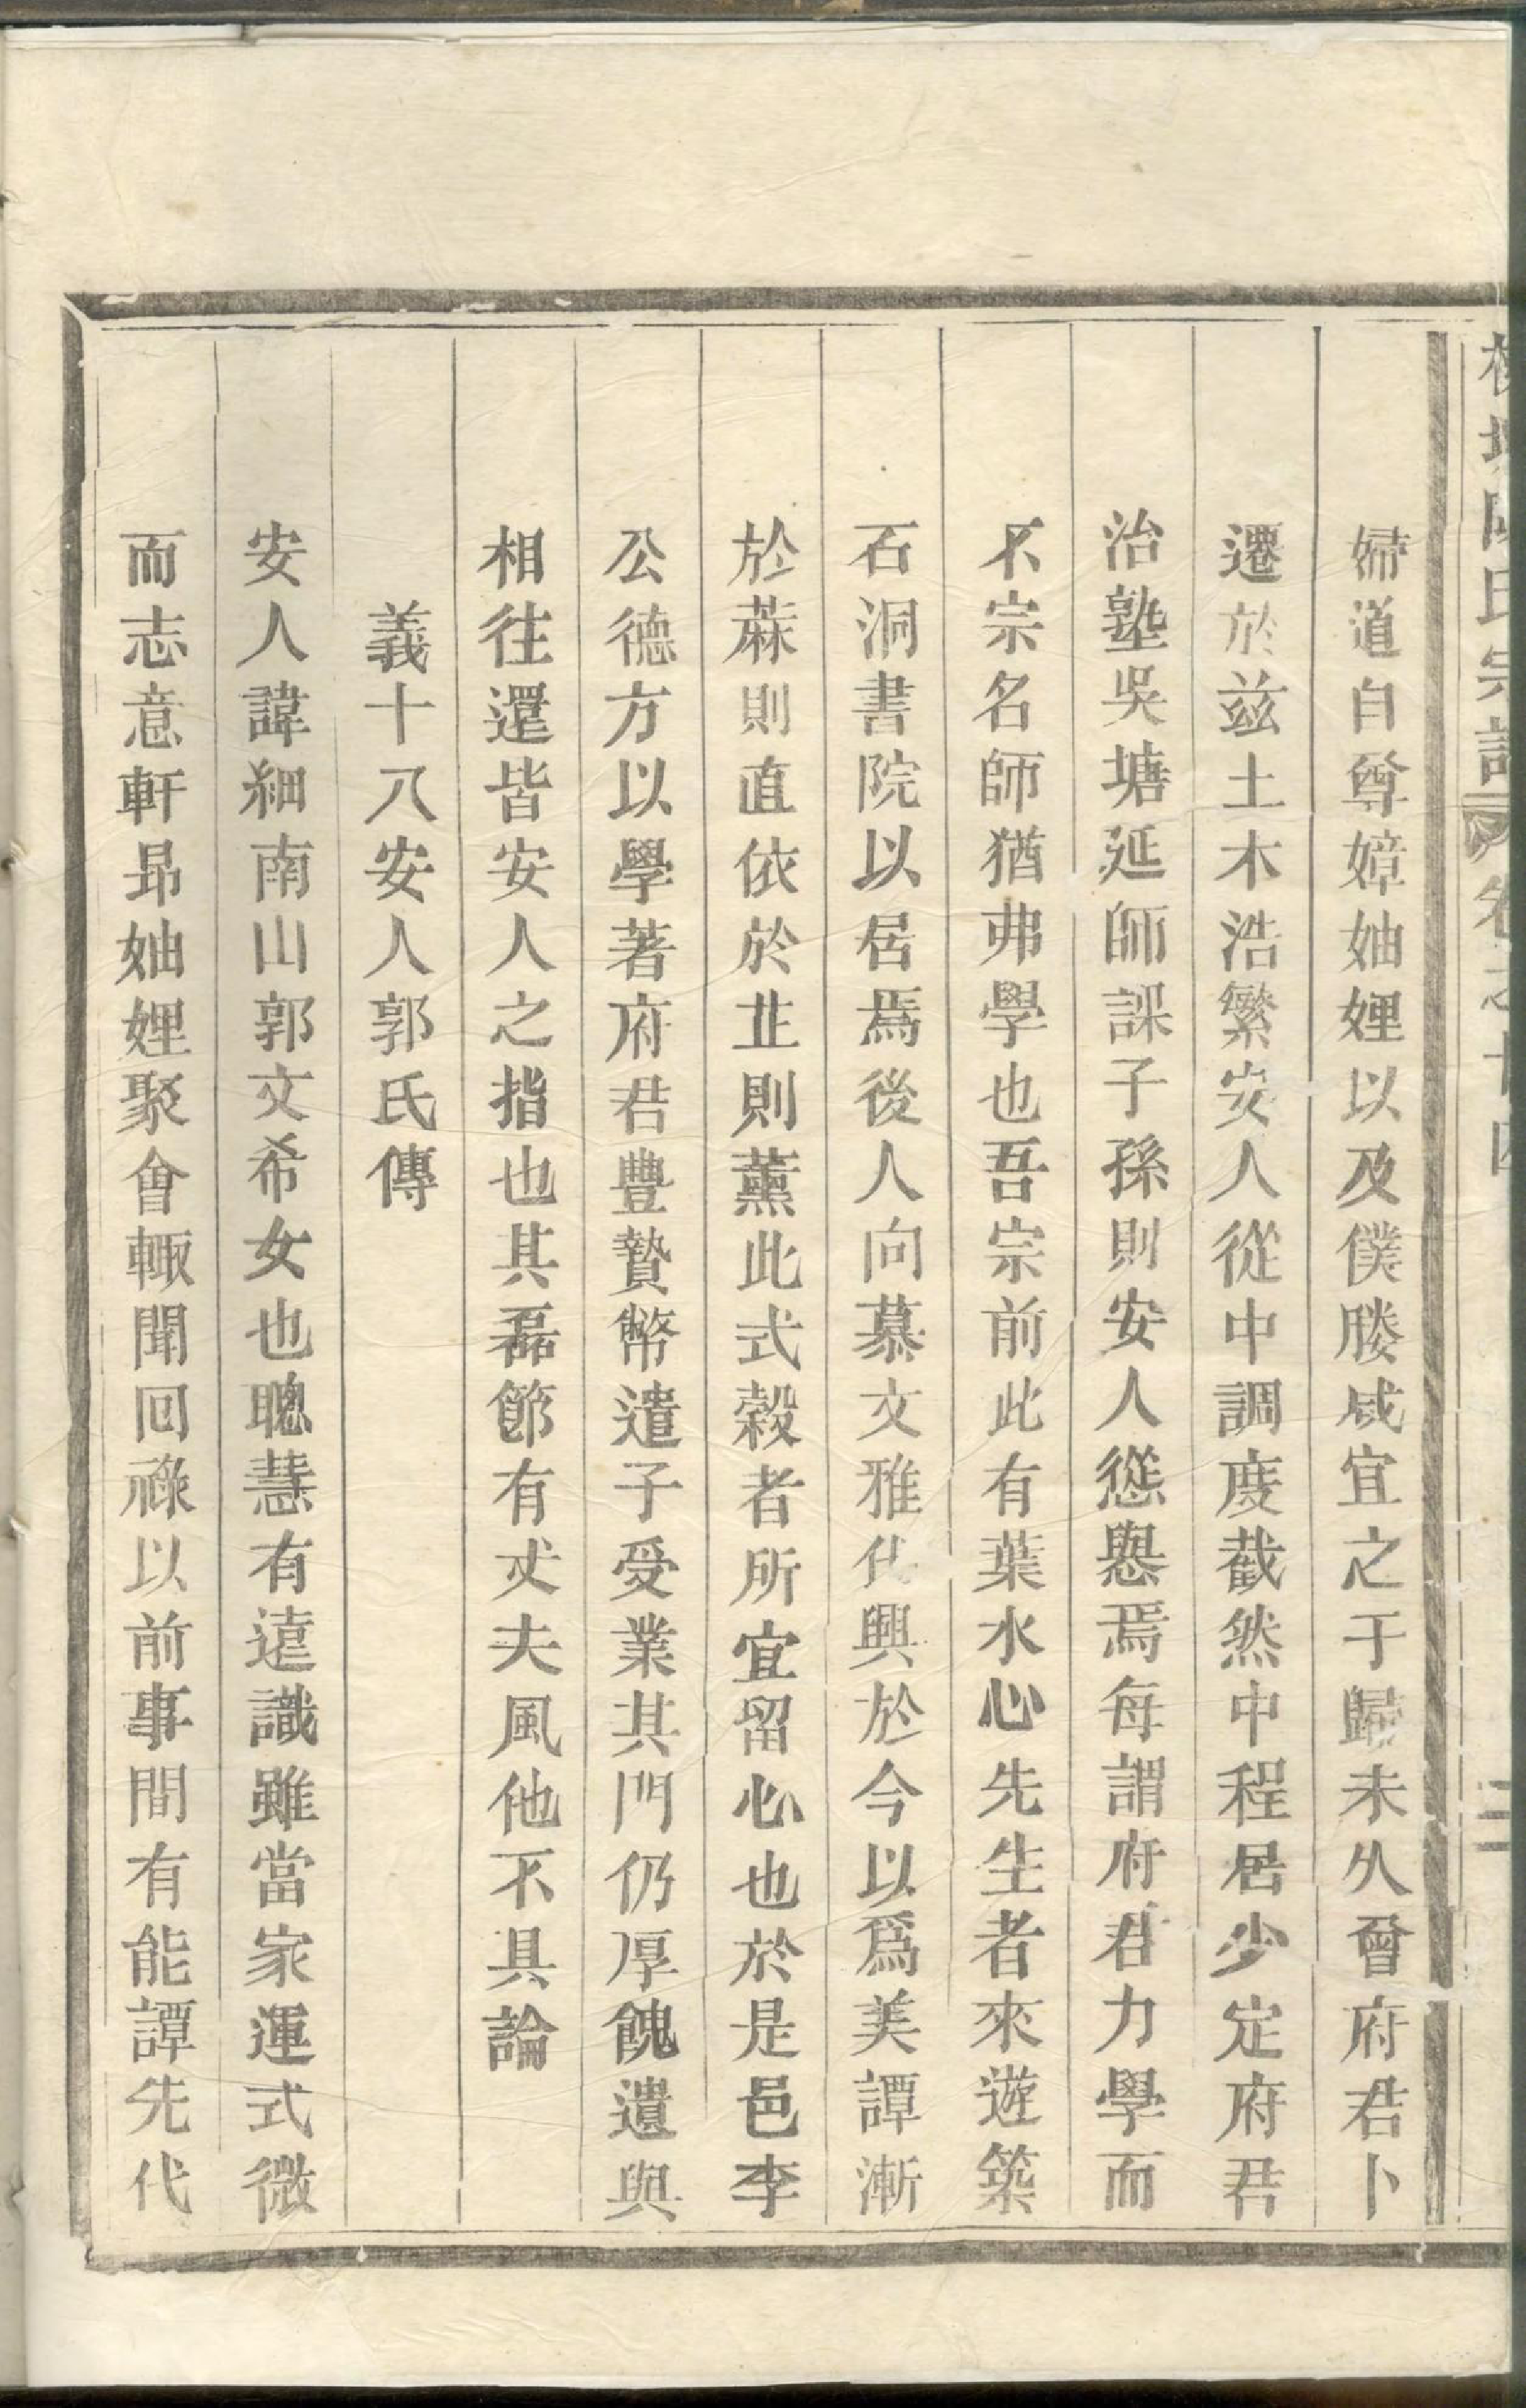 婦道自尊嫜妯娌以及僕媵咸宜之于歸未久曾府君卜
遷於兹土木浩繁安人從中調度截然中程居少定府君
治塾吳塘延師課子孫則安人慫惥焉每謂府君力學而
不宗名師猶弗學也吾宗前此有葉水心先生者來遊築
石洞書院以居焉後人向慕文雅化興於今以爲美譚漸
於蔴則直依於芷則薰此式榖者所宜留心也於是邑李
公德方以學著府君豊贄幣遣子受業其門仍厚餽遺與
相往還皆安人之指也其磊節有丈夫風他不具論
義十八安人郭氏傳
安人諱細南山郭文希女也聰慧有遠識雖當家運式微
而志意軒昻妯娌聚會輙聞回祿以前事間有能譚先代